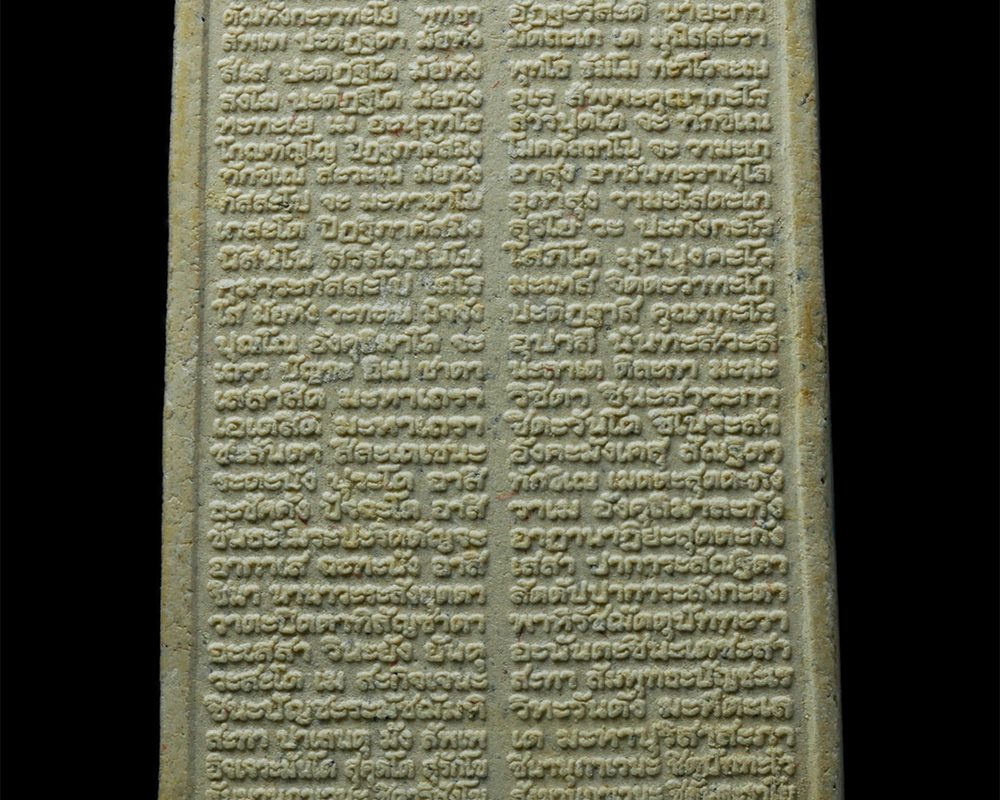 ตัณหังกะราทะโย พุทธา อัฏฐะวีสะติ นายะกา
สัพเพ ปะติฏฐิตา มัยหัง มัตถะเก เต มุนิสสะรา
สีเส ปะติฏฐิโต มัยหัง พุทโธ ธัมโม ทะวิโลจะเน
สังโฆ ปะติฏฐิโต มัยหัง อุเร สัพพะคุณากะโร
หะทะเย เม อะนุรุทโธ สารีปุตโต จะ ทักขิเณ
โกณฑัญโญ ปิฏฐิภาคัสมิง โมคคัลลาโน จะ วามะเก
ทักขิเณ สะวะเน มัยหัง อาสุง อานันทะราหุโล
กัสสะโป จะ มะหานาโม อุภาสุง วามะโสตะเก
เกสะโต ปิฏฐิภาคัสมิง สุริโย วะ ปะภังกะโร
นิสินโน สิริสัมปันโน โสภิโต มุนิปุงคะโว
กุมาระกัสสะโป เถโร มะเหสี จิตตะวาทะโก
โส มัยหัง วะทะเน นิจจัง ปะติฏฐาสิ คุณากะโร
ปุณโณ อังคุลิมาโล จะ อุปาลี นันทะสีวะลี
เถรา ปัญจะ อิเม ชาตา นะลาเต ติละกา มะมะ
เสสาสีติ มะหาเถรา วิชิตา ชินะสาวะกา
เอเตสีติ มะหาเถรา ชิตะวันโต ชิโนระสา
ชะลันตา สีละเตเชนะ อังคะมังเคสุ สัณฐิตา
ระตะนัง ปุระโต อาสิ ทักขิเณ เมตตะสุตตะกัง
ธะชัคคัง ปัจฉะโต อาสิ วาเม อังคุลิมาละกัง
ขันธะโมระปะริตตัญจะ อาฏานาฏิยะสุตตะกัง
อากาเส ฉะทะนัง อาสิ เสสา ปาการะสัณฐิตา
ชินา นานาวะระสังยุตตา สัตตัปปาการะลังกะตา
วาตะปิตตาทิสัญชาตา พาหิรัชฌัตตุปัททะวา
อะเสสา วินะยัง ยันตุ อะนันตะชินะเตชะสา
วะสะโต เม สะกิจเจนะ สะทา สัมพุทธะปัญชะเร
ชินะปัญชะระมัชฌัมหิ วิหะรันตัง มะหีตะเล
สะทา ปาเลนตุ มัง สัพเพ เต มะหาปุริสาสะภา
อิจเจวะมันโต สุคุตโต สุรักโข ชินานุภาเวนะ ชิตุปัททะโว